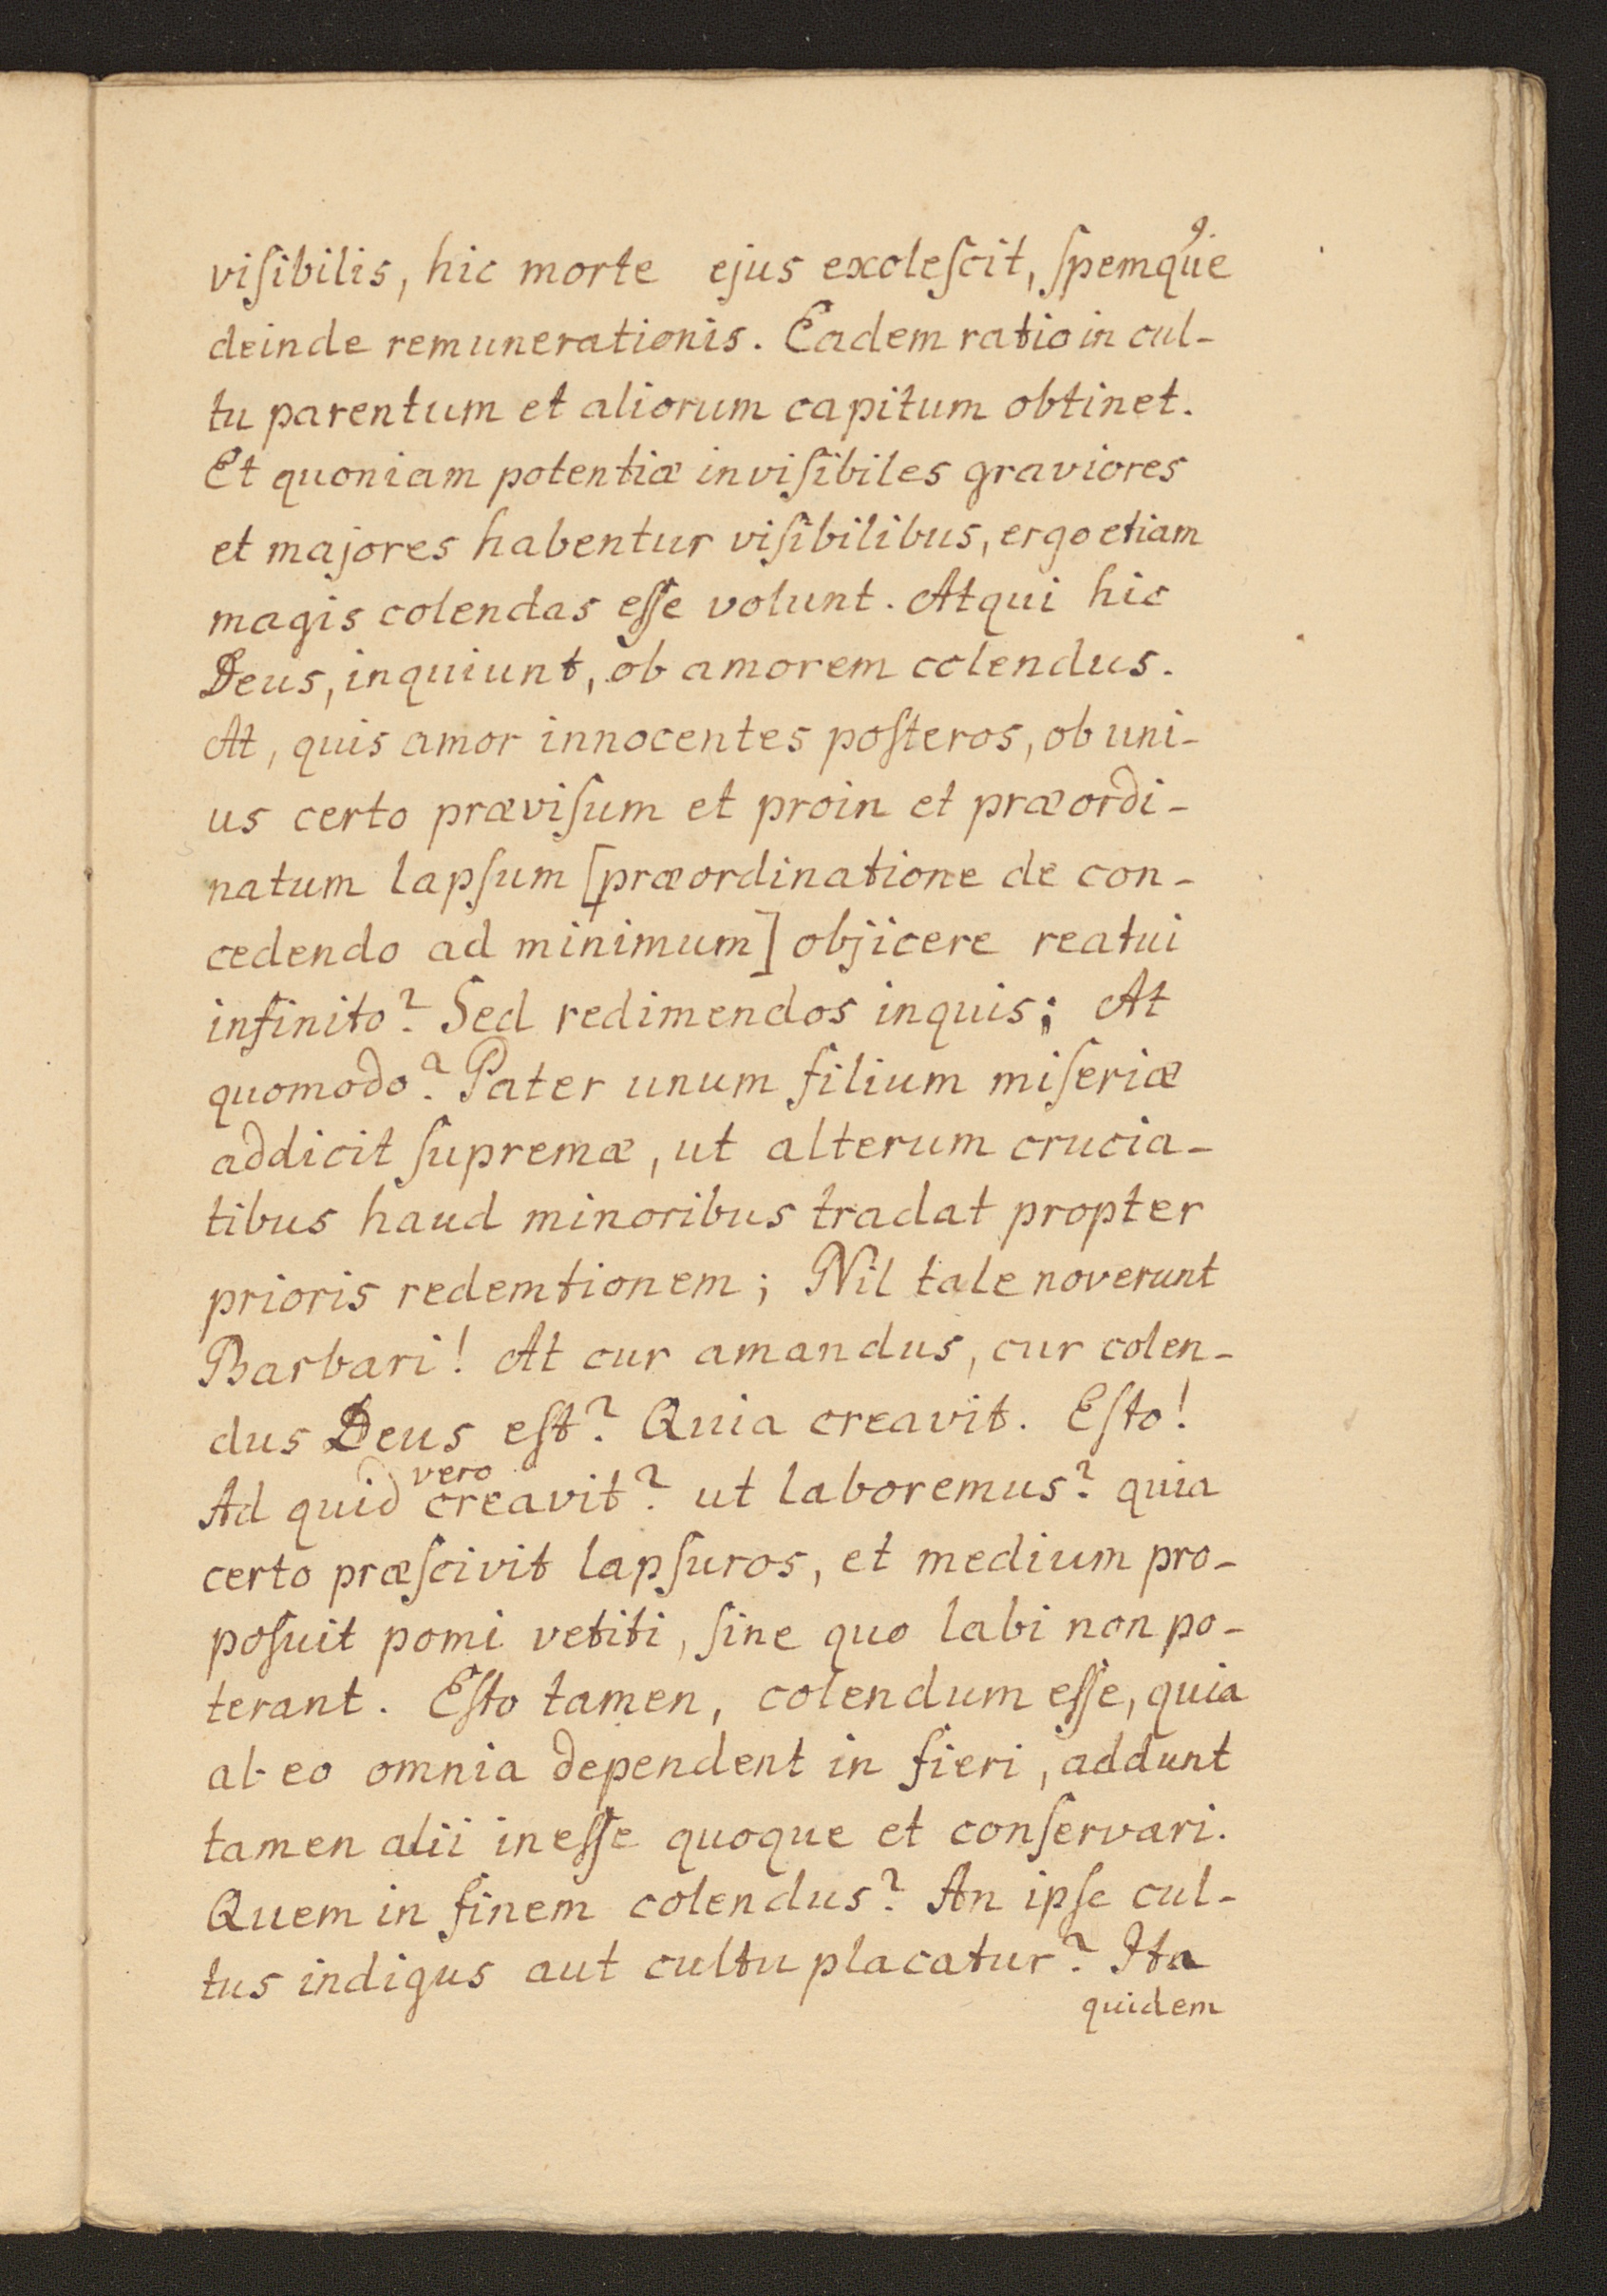 9.
viſibilis, hic morte ejus exoleſcit, ſpemque
deinde remunerationis. Eadem ratio in cul-
tu parentum et aliorum capitum obtinet.
Et quoniam potentiæ inviſibiles graviores
et majores habentur viſibilibus, ergo etiam
magis colendas eſſe volunt. Atqui hic
Deus, inquiunt, ob amorem colendus.
At, quis amor innocentes poſteros, ob uni-
us certo præviſum et proin et præordi-
natum lapſum [præordinatione de con-
cedendo ad minimum] objicere reatui
infinito? Sed redimendos inquis; At
quomodo? Pater unum filium miſeriæ
addicit ſupremæ, ut alterum crucia-
tibus haud minoribus tradat propter
prioris redemtionem; Nil tale noverunt
Barbari! At cur amandus, cur colen-
dus Deus eſt? Quia creavit. Eſto!
vero
Ad quid creavit? ut laboremus? quia
certo præſcivit lapſuros, et medium pro-
poſuit pomi vetiti, ſine quo labi non po-
terant. Eſto tamen, colendum eſſe, quia
ab eo omnia dependent in fieri, addunt
tamen alii in eſſe quoque et conſervari.
Quem in finem colendus? An ipſe cul-
tus indigus aut cultu placatur? Ita
quidem